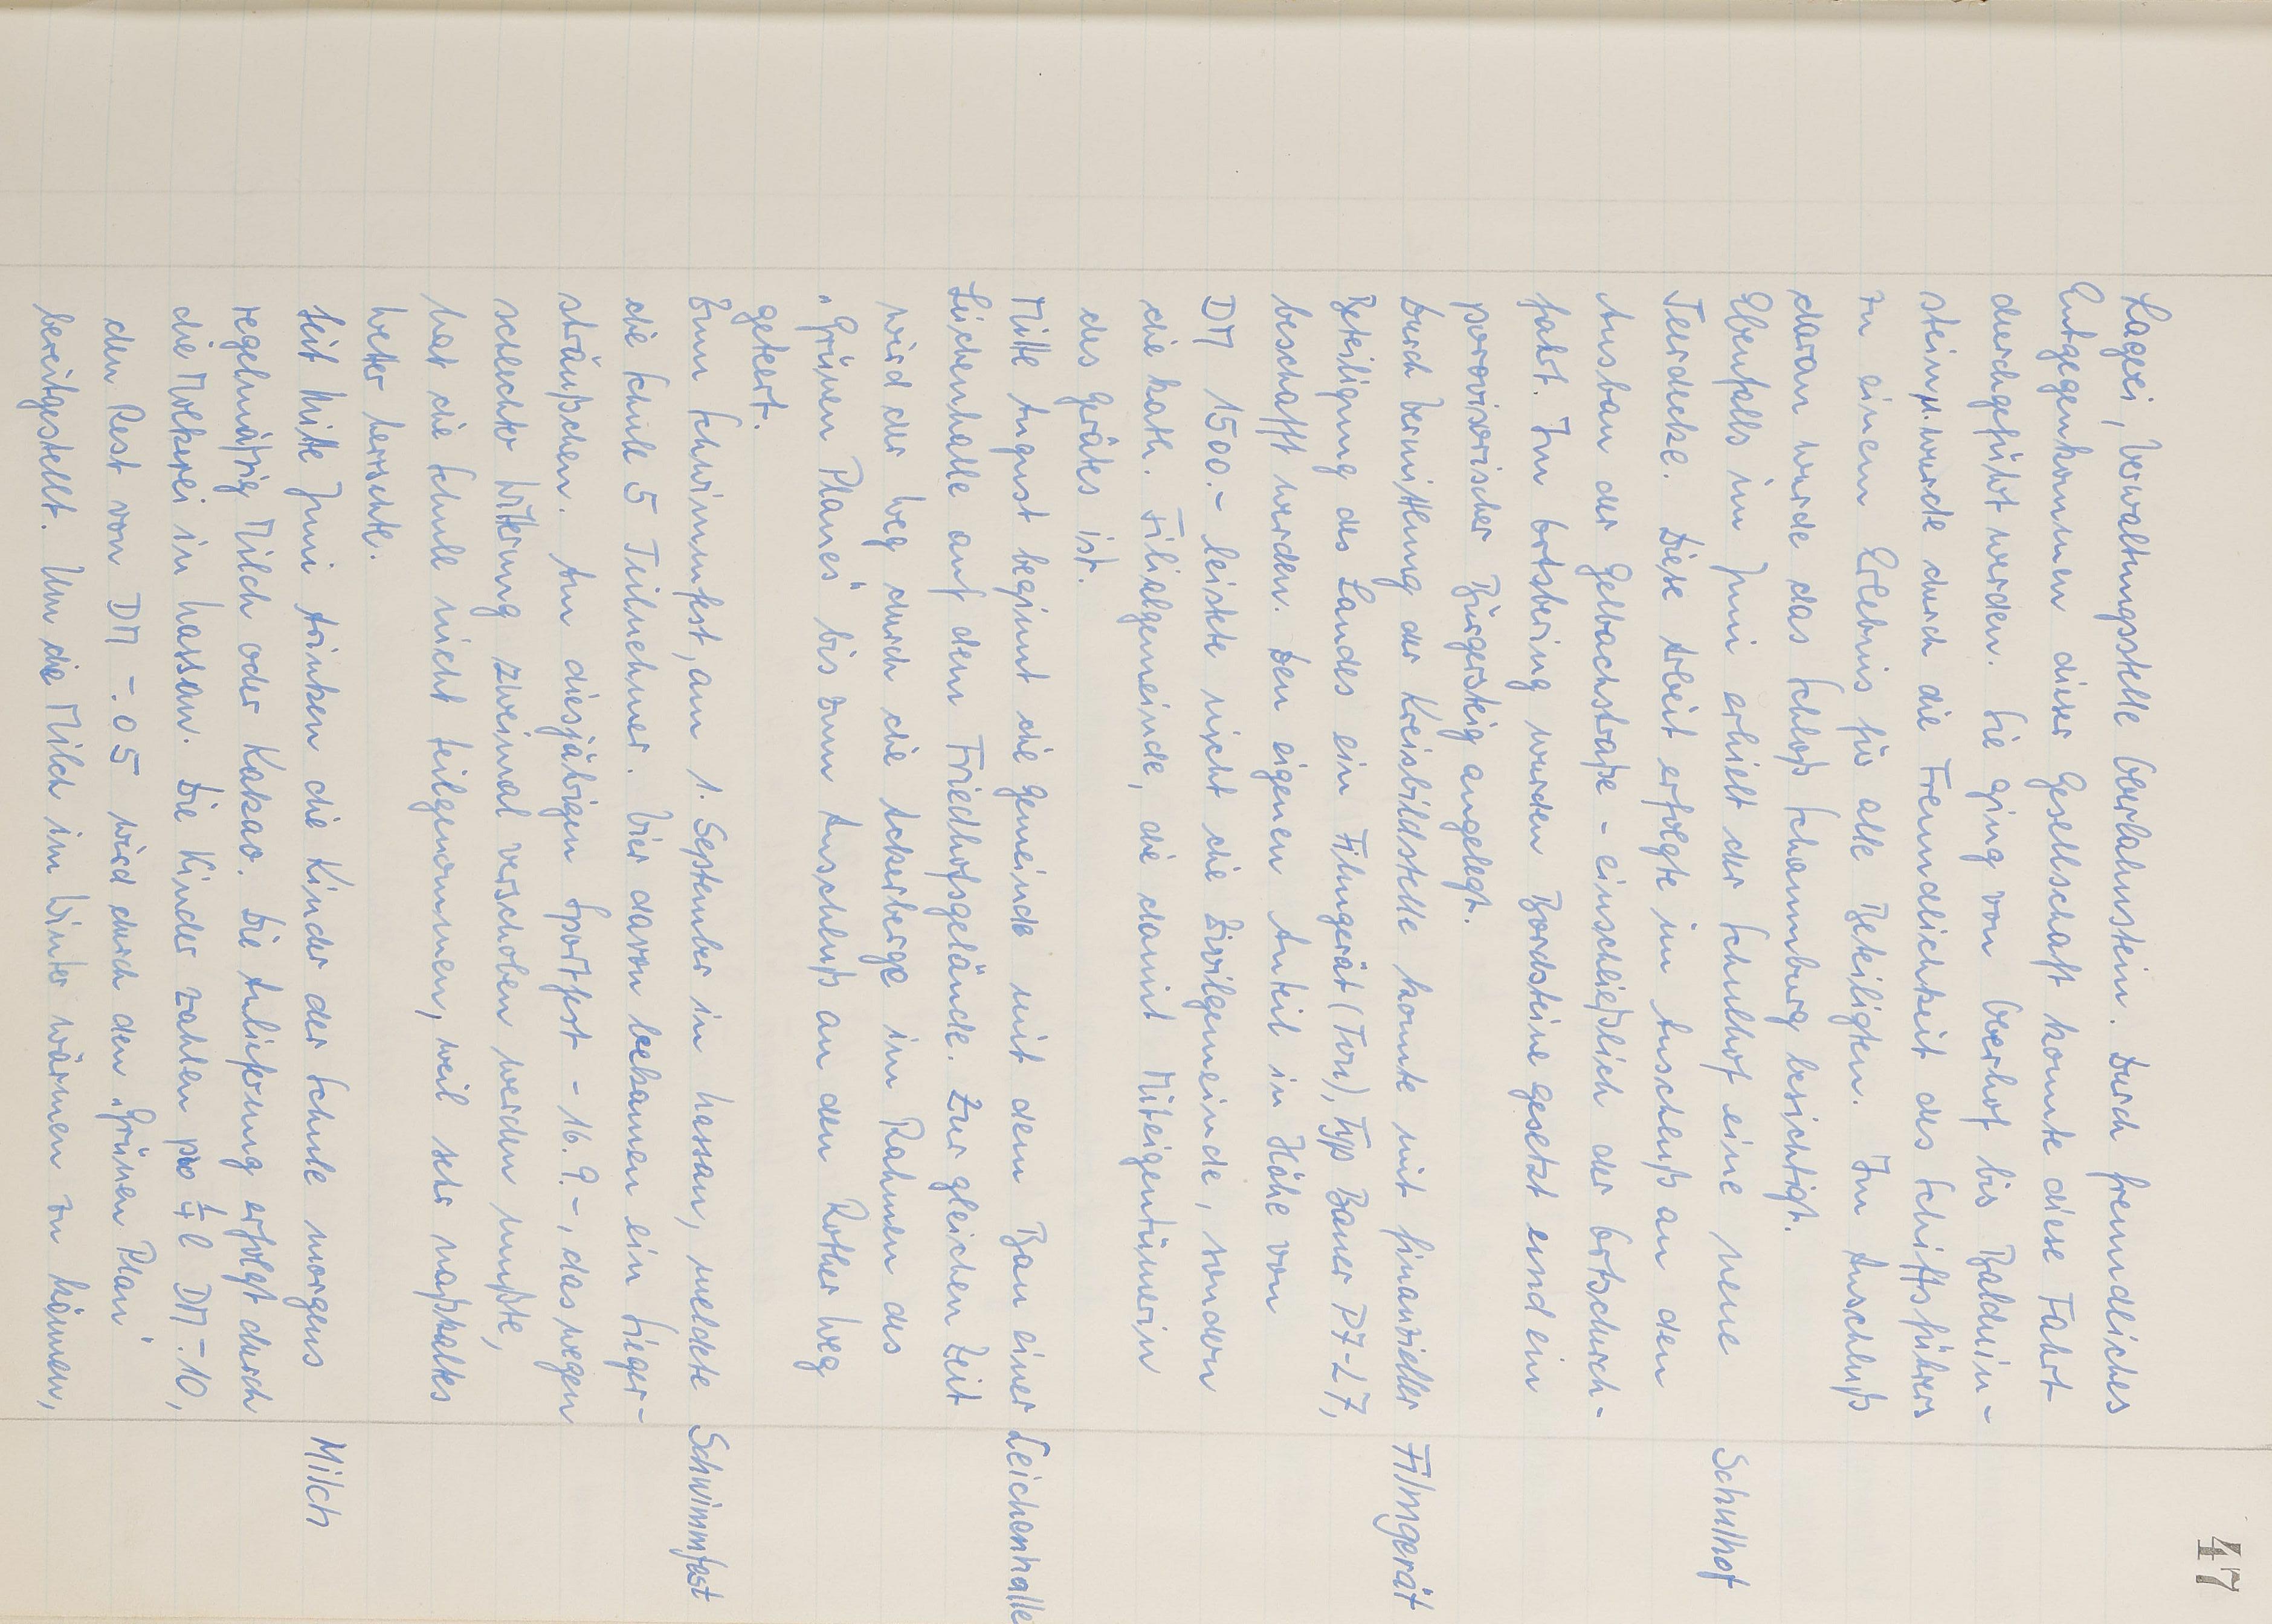 47
Lagei, Verwaltungsstelle Oberlahnstein. Durch freundliches
Entgegenkommen dieser Gesellschaft konnte diese Fahrt
durchgeführt werden. Sie ging von Oberhof bis Balduin-
stein, u. wurde durch die Freundlichkeit des Schiffsführers
zu einem Erlebnis für alle Beteiligten. Im Anschluß
daran wurde das Schloß Schaumburg besichtigt.
Ebenfalls im Juni erhielt der Schulhof eine neue Schulhof
Teerdecke. Diese Arbeit erfolgte im Anschluß an den
Ausbau der Gelbachstraße - einschließlich der Ortsdurch-
fahrt. Im Ortsbering wurden Bordsteine gesetzt und ein
porovisorischer Bürgersteig angelegt.
Durch Vermittlung der Kreisbildstelle konnte mit finanzieller Filmgerät
Beteiligung des Landes ein Filmgerät (Ton), Typ Bauer P7-L7,
beschafft werden. Den eigenen Anteil in Höhe von
DM 1500.- leistete nicht die Zivilgemeinde, sondern
die kath. Filialgemeinde, die damit Miteigentümerin
des Gerätes ist.
Mitte August beginnt die Gemeinde mit dem Bau einer Leichenhalle
Leichenhalle auf dem Friedhofsgelände. Zur gleichen Zeit
wird der Weg durch die Ackerberge im Rahmen des
"Grünen Planes" bis zum Anschluß an den Rother Weg
geteert.
Zum Schwimmfest, am 1. September in Nassau, meldete Schwimmfest
die Schule 5 Teilnehmer. Vier davon bekamen ein Sieger-
sträußchen. Am diesjährigen Sportfest - 16.9.-, das wegen
schlechter Witterung zweimal verschoben werden mußte,
hat die Schule nicht teilgenommen, weil sehr naßkaltes
Wetter herrschte.
Seit Mitte Juni trinken die Kinder der Schule morgens Milch
regelmäßig Milch oder Kakao. Die Anlieferung erfolgt durch
die Molkerei in Nassau. Die Kinder zahlen pro 1/4 l DM -.10,
den Rest von DM -.05 wird durch den "Grünen Plan"
bereitgestellt. Um die Milch im Winter wärmen zu können,